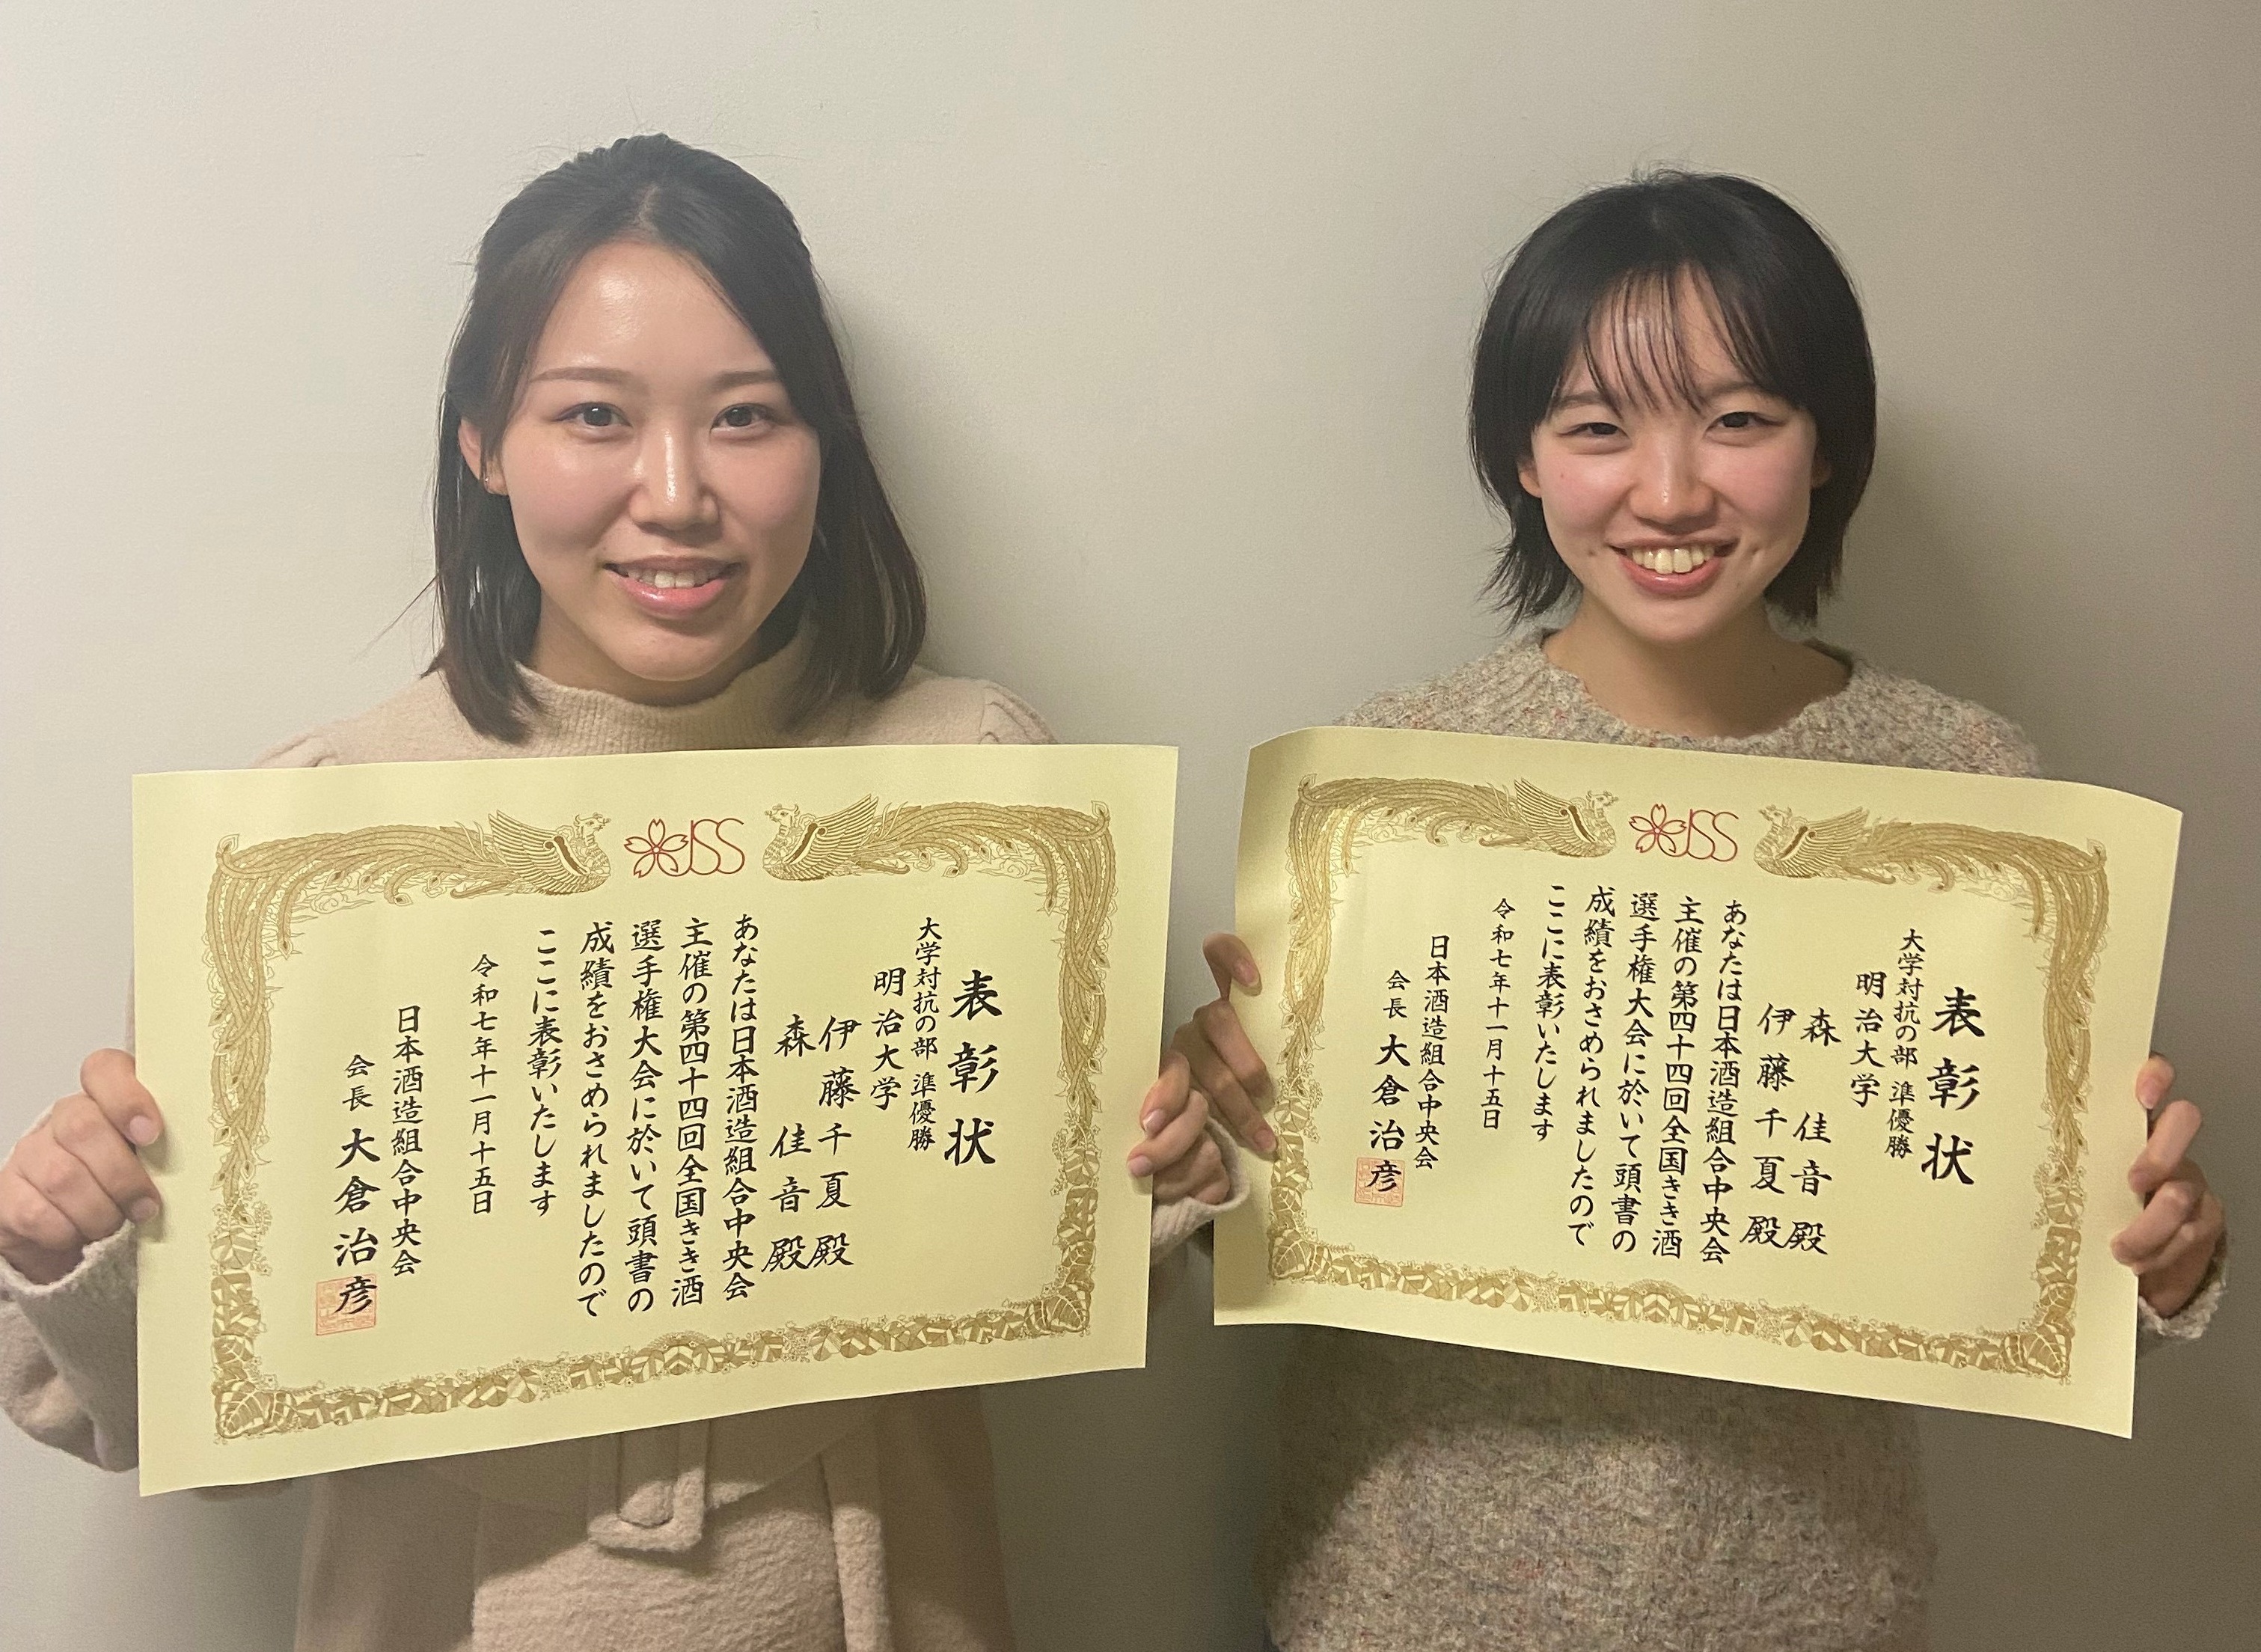 JSS
表彰状
大学対抗の部 準優勝
明治大学
伊藤千夏殿
森佳音殿
あなたは日本酒造組合中央会
主催の第四十四回全国きき酒
選手権大会に於いて頭書の
成績をおさめられましたので
ここに表彰いたします
令和七年十一月十五日
日本酒造組合中央会
会長 大倉治彦
JSS
表彰状
大学対抗の部 準優勝
明治大学
森佳音殿
伊藤千夏殿
あなたは日本酒造組合中央会
主催の第四十四回全国きき酒
選手権大会に於いて頭書の
成績をおさめられましたので
ここに表彰いたします
令和七年十一月十五日
日本酒造組合中央会
会長 大倉治彦